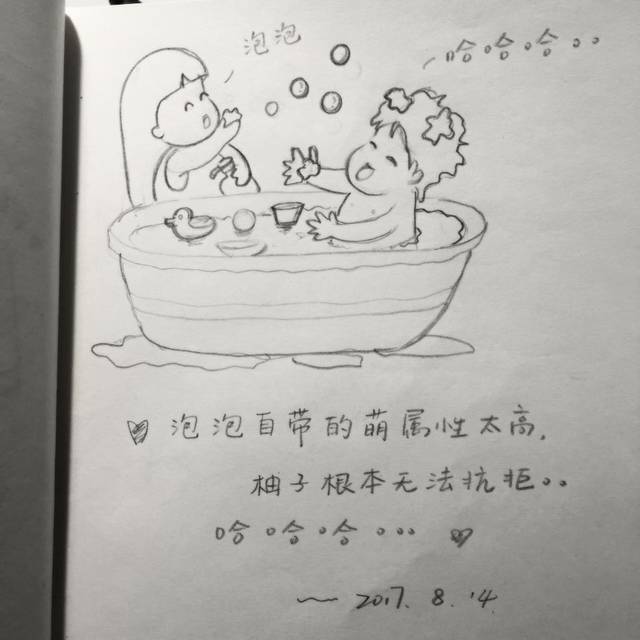 泡泡
哈哈哈。。
泡泡自带的萌属性太高,
柚子根本无法抗拒。。
哈哈哈。。。
~ 2017. 8. 14.